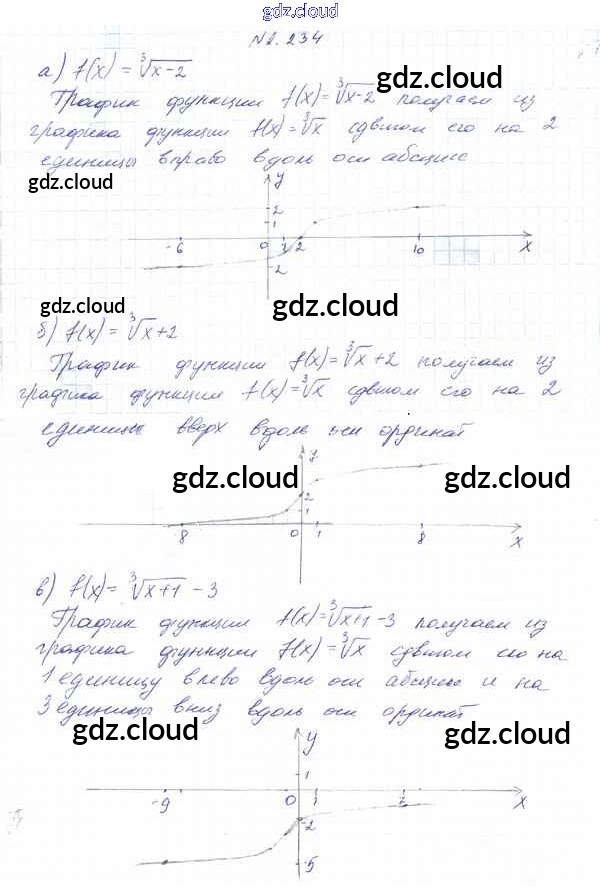 gdz.cloud
№1.234
а) f(x) = ∛x-2
gdz.cloud
График функции f(x) = ∛x-2 получаем из
графика функции f(x) = ∛x сдвигом его на 2
единицы вправо вдоль оси абсцисс
gdz.cloud
y
2
1
-6 0 1 2 10 x
2
gdz.cloud
gdz.cloud
б) f(x) = ∛x+2
График функции f(x) = ∛x+2 получаем из
графика функции f(x) = ∛x сдвигом его на 2
единицы вверх вдоль оси ординат
y
gdz.cloud gdz.cloud
2
8 0 1 8 x
в) f(x) = ∛x+1 - 3
График функции f(x) = ∛x+1 - 3 получаем из
графика функции f(x) = ∛x сдвигом его на
1 единицу влево вдоль оси абсцисс и на
3 единицы вниз вдоль оси ординат
gdz.cloud gdz.cloud
y
1
-9 0 1 7 x
-2
-5